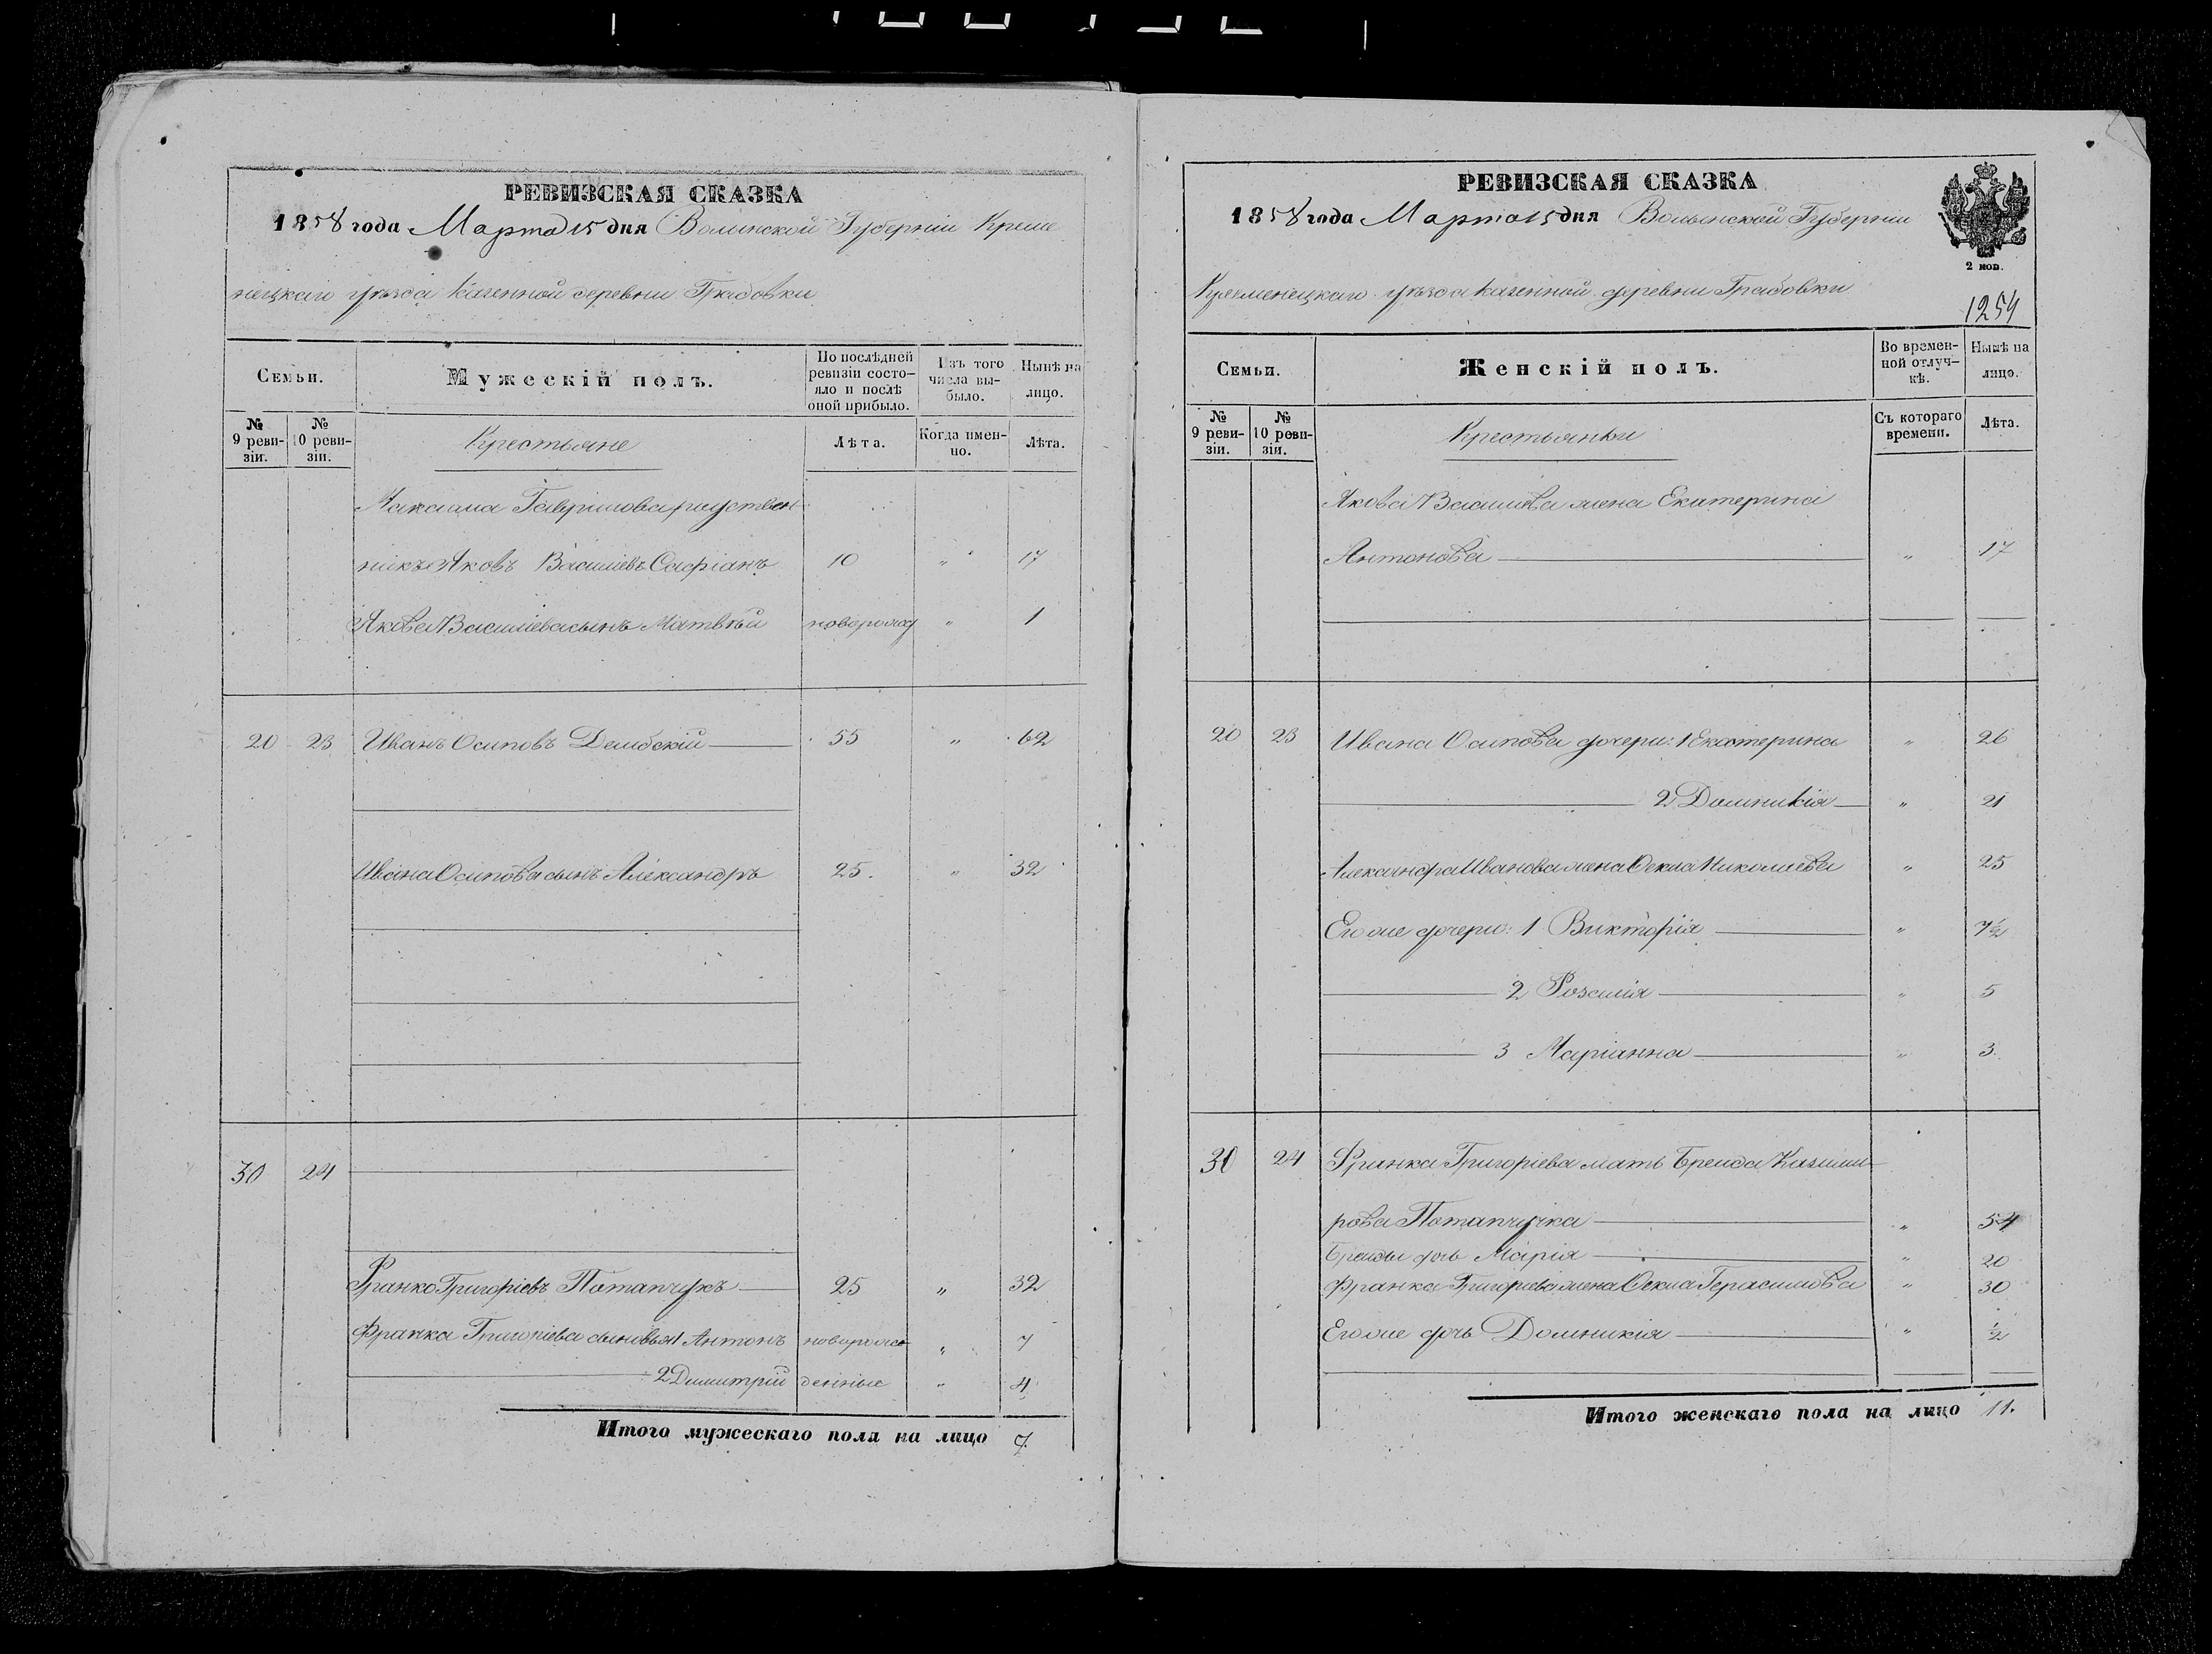 РЕВИЗСКАЯ СКАЗКА
1858 года Марта 15 дня Волынской Губерніи Креме
нецкаго уѣзда казенной деревни Грабовки
Семьи.
Мужескій полъ.
По послѣдней ревизіи состояло и послѣ оной прибыло.
Изъ того числа выбыло.
Нынѣ на лицо.
№ 9 ревизіи.
№ 10 ревизіи.
Крестьяне
Лѣта.
Когда именно.
Лѣта.
Максима Гаврилова родствен
никъ Яковъ Васильевъ Сафіанъ 10 " 17
Якова Васильева сынъ Матвѣй новорожд " 1
20 23 Иванъ Осиповъ Дембскій 55 " 62
Ивана Осипова сынъ Александръ 25. " 32
30 24
Франко Григоріевъ Потапчукъ 25 " 32
Франка Григоріева сыновья 1 Антонъ новорож " 7
2 Димитрій денные " 4
Итого мужескаго пола на лицо 7.
РЕВИЗСКАЯ СКАЗКА
1858 года Марта 15 дня Волынской Губерніи
2 коп.
Кременецкаго уѣзда казенной деревни Грабовки
1254
Семьи.
Женскій полъ.
Во временной отлучкѣ.
Нынѣ на лицо.
№ 9 ревизіи.
№ 10 ревизіи.
Крестьянки
Съ котораго времени.
Лѣта.
Якова Васильева жена Екатерина
Антонова " 17
20 23 Ивана Осипова дочери: 1 Екатерина " 26
2 Домникія " 21
Александра Иванова жена Ѳекла Николаева " 25
Его же дочери: 1 Викторія " 7½
2 Розалія " 5
3 Маріанна " 3.
30 24 Франка Григоріева мать Казими
рова Потапчучка " 54
дочь Марія " 20
Франка Григоріева жена Ѳекла Герасимова " 30
Его же дочь Домникія " ½
Итого женскаго пола на лицо 11.